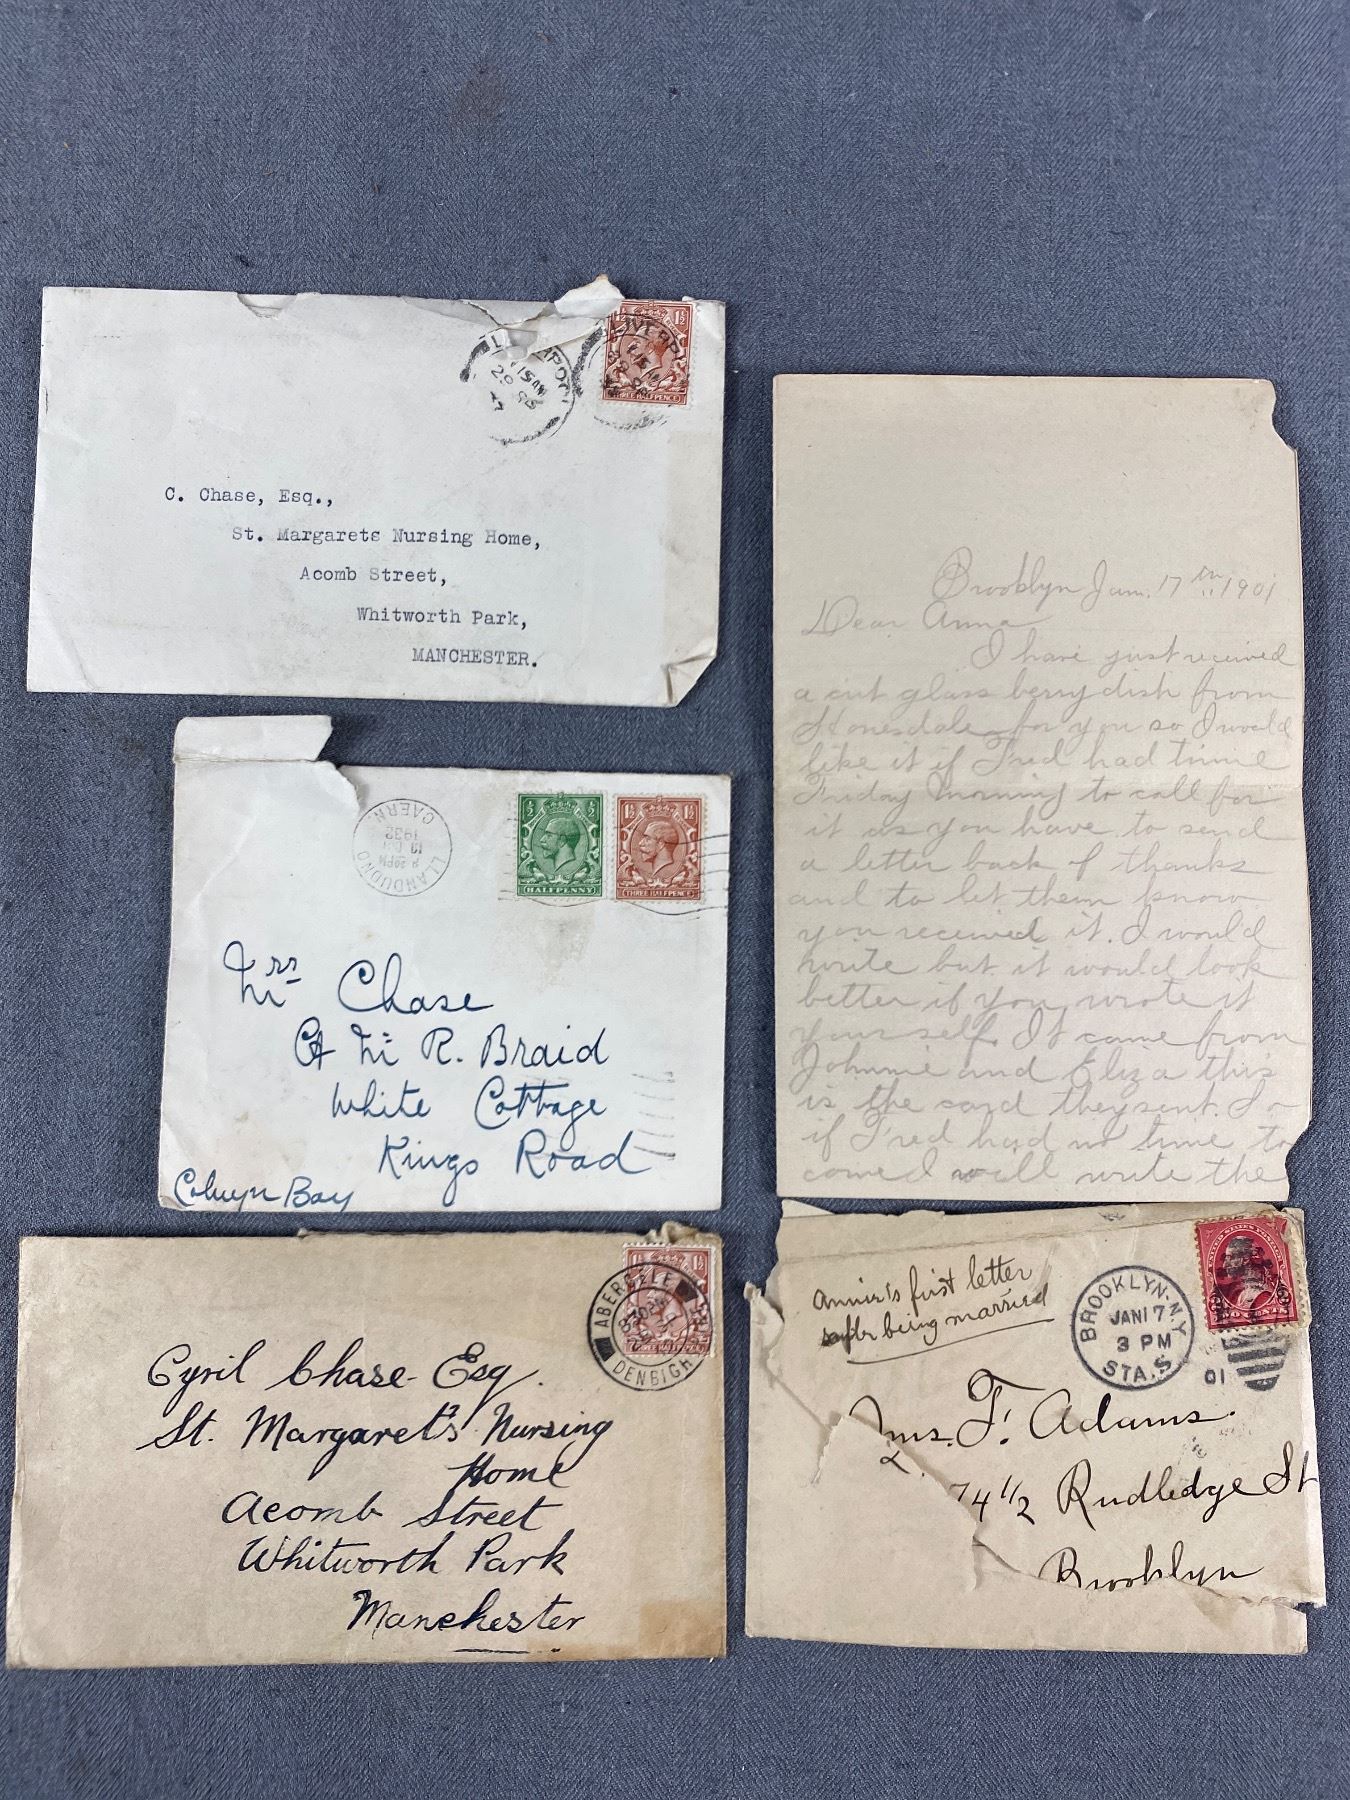 1½ 1½
LIVERPOOL
THREE HALFPENCE
C. Chase, Esq.,
St. Margarets Nursing Home,
Acomb Street,
Whitworth Park,
MANCHESTER.
LLANDUDNO
1932
CAERN.
½ ½
HALFPENNY
1½ 1½
THREE HALFPENCE
Mrs Chase
Ct Mr R. Braid
White Cottage
Kings Road
Colwyn Bay
1½ 1½
ABERGELE
DENBIGH
THREE HALFPENCE
Cyril Chase Esq.
St. Margaret's Nursing
Home
Acomb Street
Whitworth Park
Manchester
Brooklyn Jan. 17th 1901
Dear Anna
I have just received
a cut glass berry dish from
Honesdale for you so I would
like it if Fred had time
Friday morning to call for
it as you have to send
a letter back of thanks
and to let them know
you received it. I would
write but it would look
better if you wrote it
yourself. It came from
Johnnie and Eliza this
is the card they sent. So
if Fred had no time to
come I will write the
Annie's first letter
after being married
BROOKLYN. N.Y.
JAN 17
3 PM
STA. S.
01
TWO CENTS
Mrs. F. Adams.
74 1/2 Rudledge St
Brooklyn